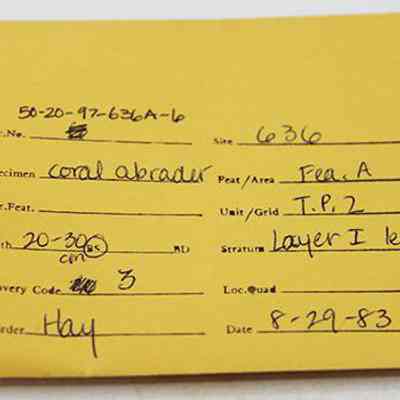 50-20-97-636A-6
.No. Site 636
cimen coral abrader Feat/Area Fea. A
r.Feat. Unit/Grid T.P. 2
th 20-30 BS BD Stratum Layer I
cm
overy Code 3 Loc.Quad
rder Hay Date 8-29-83